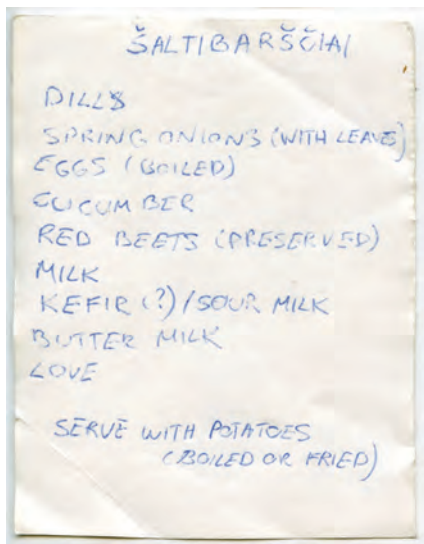 ŠALTIBARŠČIAI
DILLS
SPRING ONIONS (WITH LEAVES)
EGGS (BOILED)
CUCUMBER
RED BEETS (PRESERVED)
MILK
KEFIR (?) / SOUR MILK
BUTTER MILK
LOVE
SERVE WITH POTATOES
(BOILED OR FRIED)